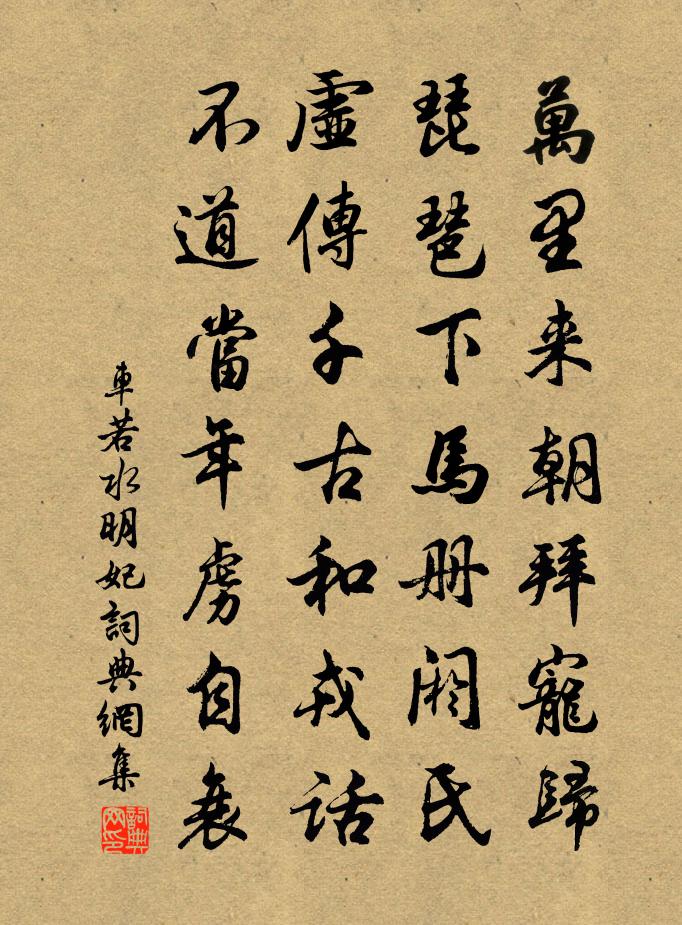 萬里来朝拜寵歸
琵琶下馬册閼氏
虛傳千古和戎話
不道當年虜自衰
車若水明妃詞典網集
詞典網印